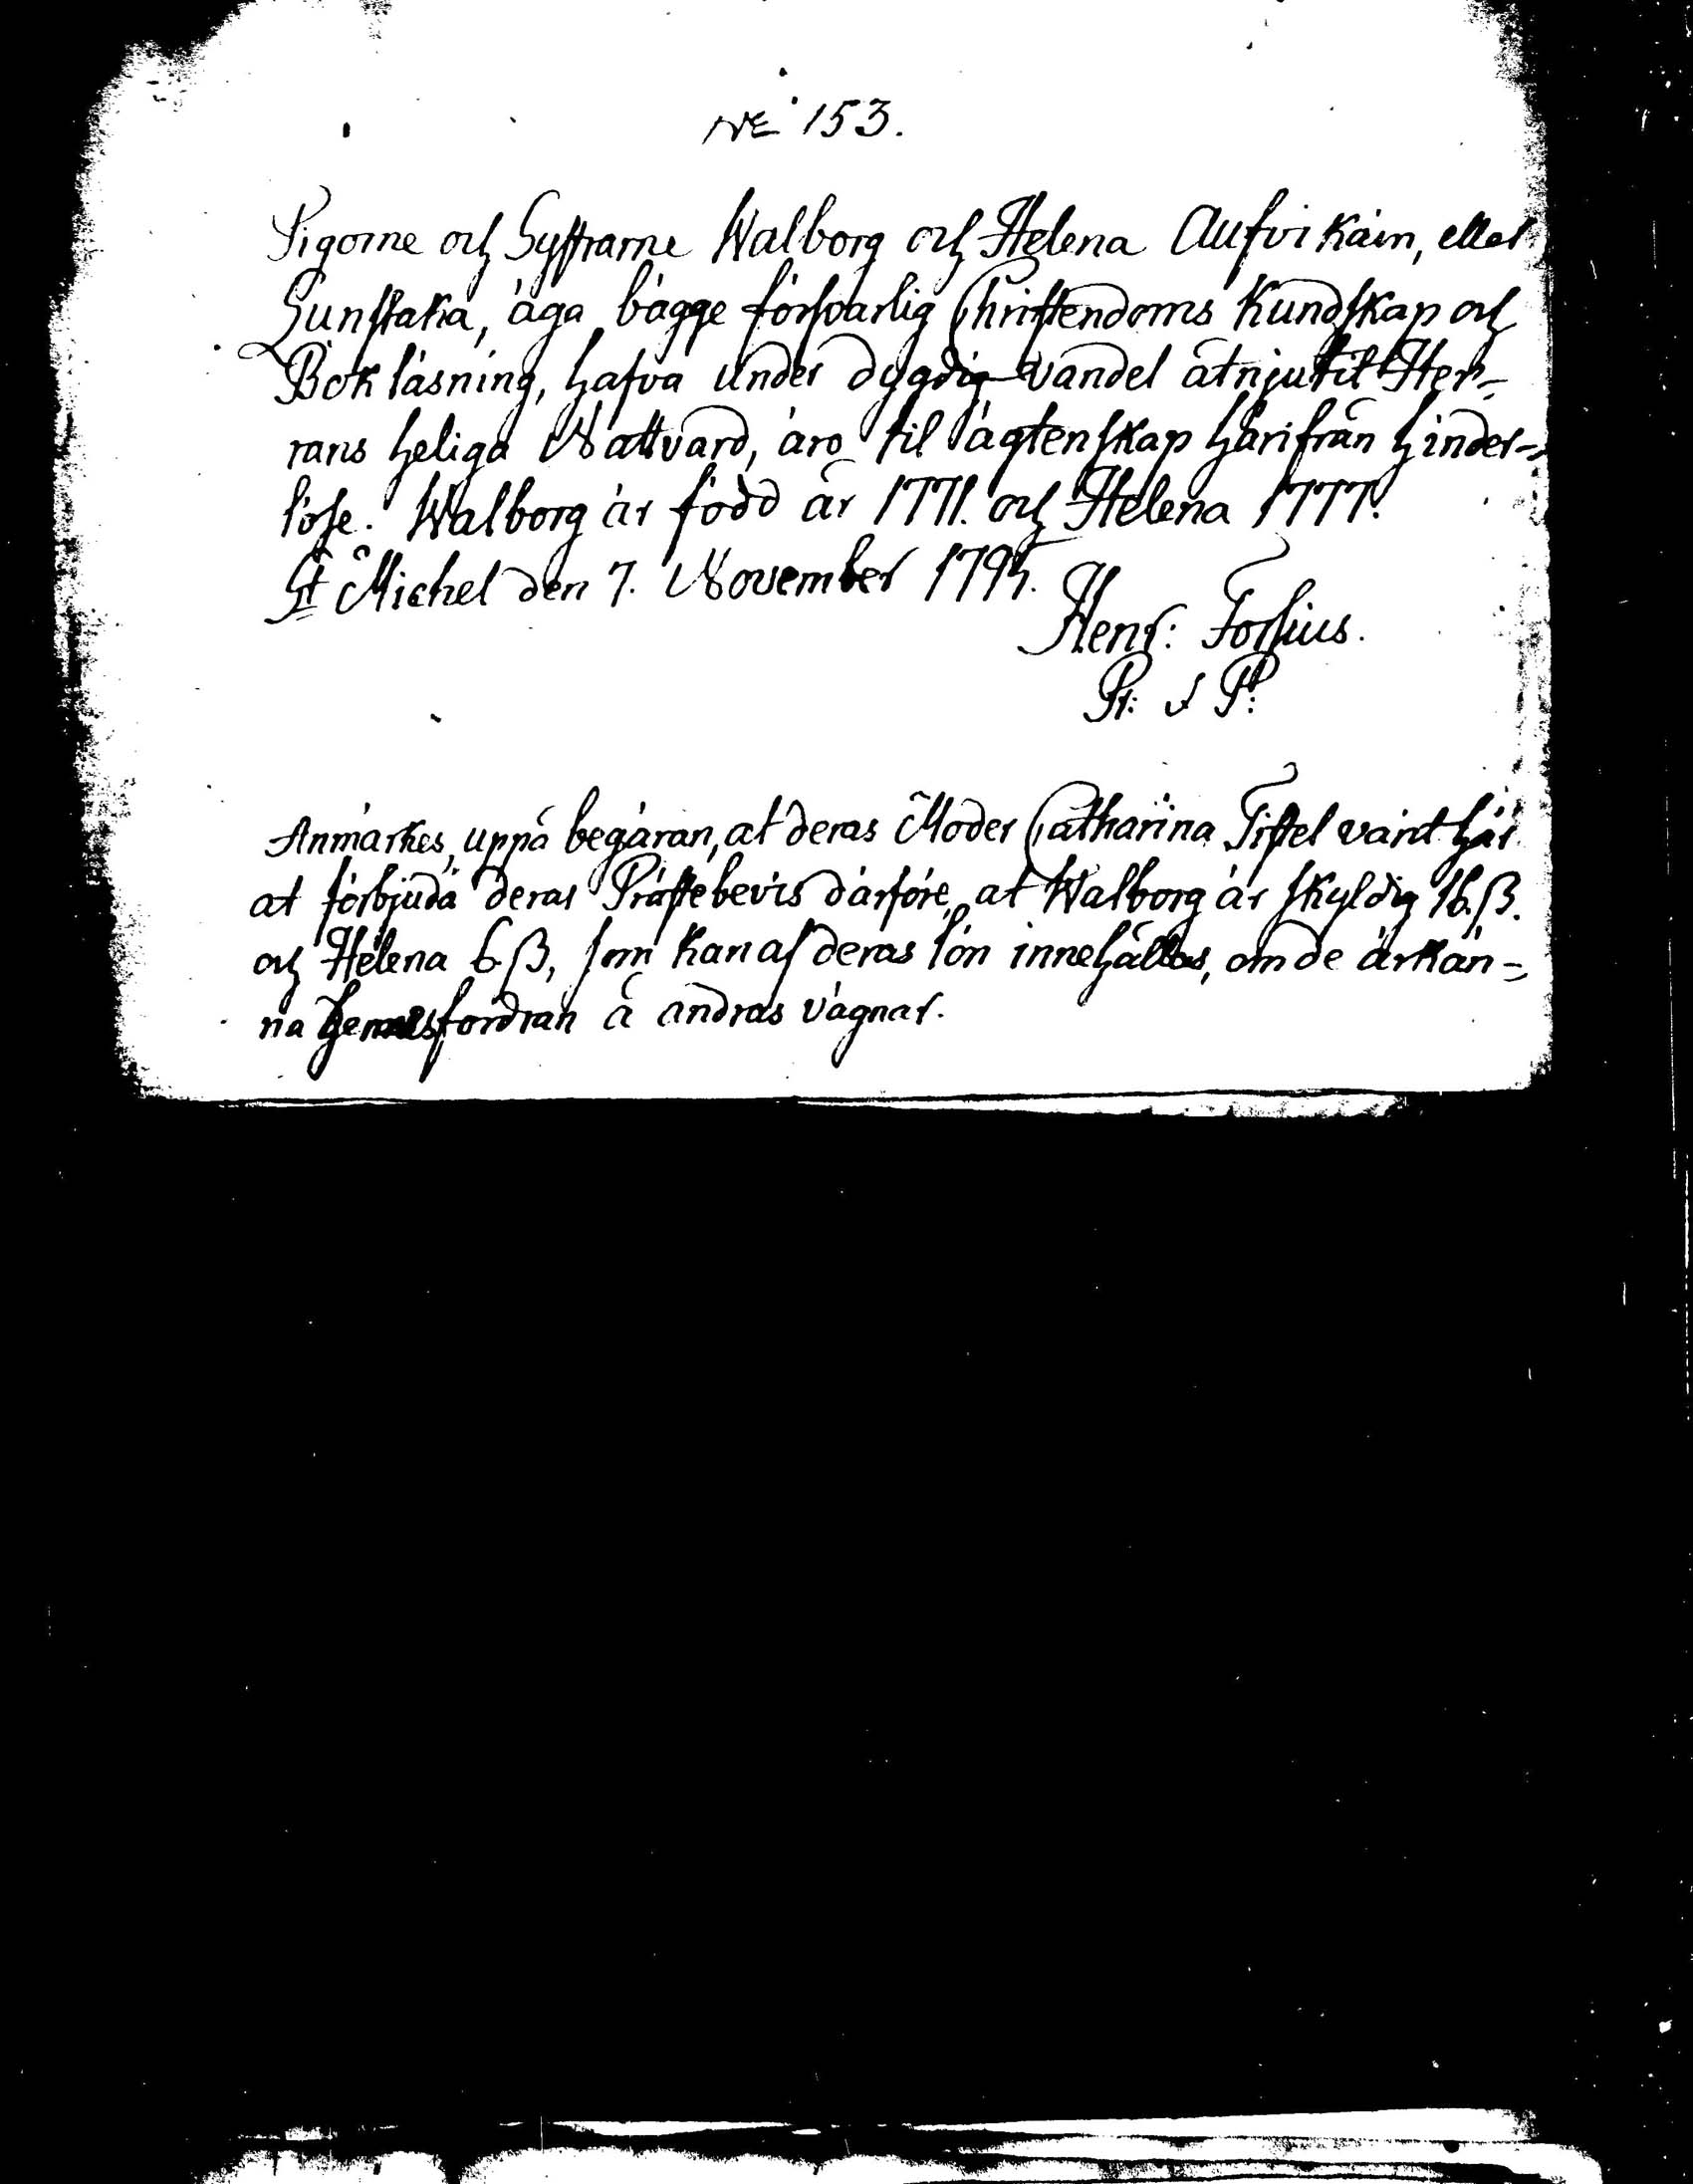 No 153.
Pigorne och Systrarne Walborg och Helena Aufvikain, eller
Sunstaka, äga bägge försvarlig Christendoms Kundskap och
Bokläsning, hafva under dygdig vandel åtnjutit Her=
rans heliga Nattvard, äro til ägtenskap härifrån hinder=
löse. Walborg är född år 1771. och Helena 1777.
St Michel den 7. November 1795.
Henr: Forsius.
Pr: & Pt:
Anmärkes, uppå begäran, at deras Moder Catharina Tistel varit här
at förbjuda deras Prästebevis därföre, at Walborg är skyldig 16 ß.
och Helena 6 ß, som kan af deras lön innehållas, om de ärkän=
na hennes fordran å andras vägnar.